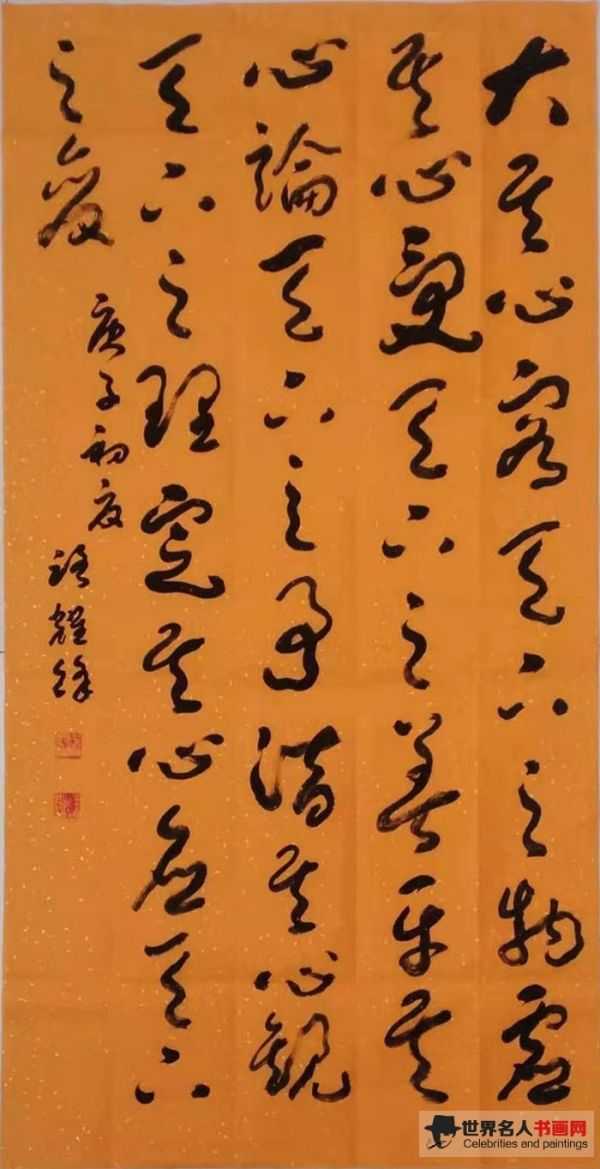 大其心容天下之物虛
其心受天下之善平其
心論天下之事潛其心觀
天下之理定其心應天下
之變
庚子初夏
耀
世界名人书画网
Celebrities and paintings